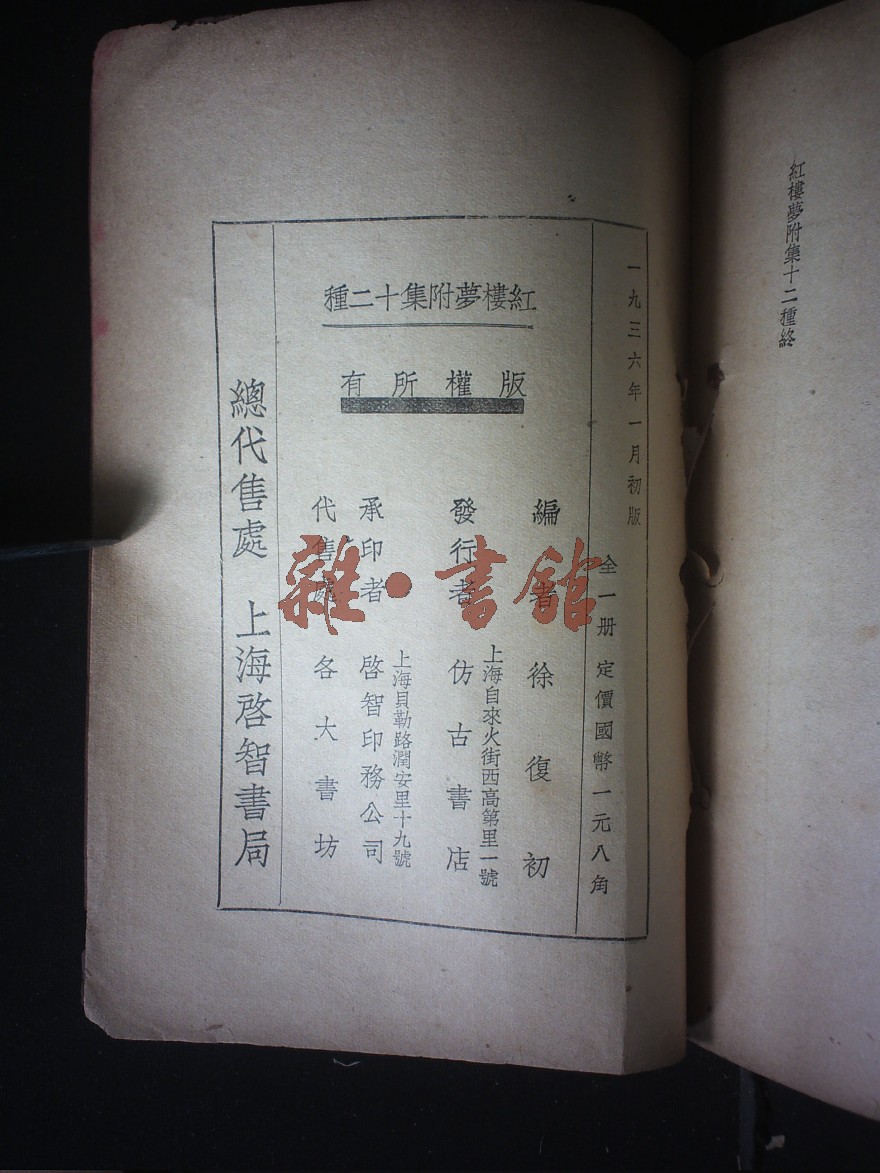 紅樓夢附集十二種終
一九三六年一月初版
全一册 定價國幣一元八角
紅樓夢附集十二種
版權所有
編者 徐復初
上海自來火街西高第里一號
發行者 仿古書店
上海貝勒路潤安里十九號
承印者 啓智印務公司
代售處 各大書坊
總代售處 上海啓智書局
雜·書館